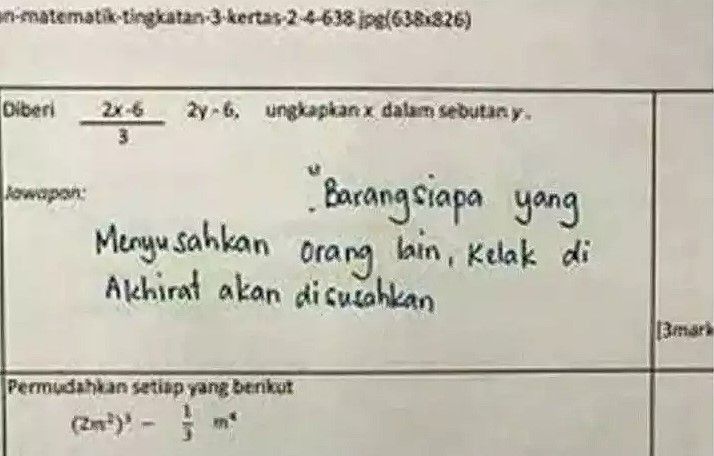 n-matematik-tingkatan-3-kertas-2-4-638.jpg(638x826)
Diberi 2x-6/3 2y-6, ungkapkan x dalam sebutan y.
Jawapan:
"Barangsiapa yang
Menyusahkan orang lain, Kelak di
Akhirat akan disusahkan
[3mark
Permudahkan setiap yang berikut
(2m²)³ - 1/3 m⁴